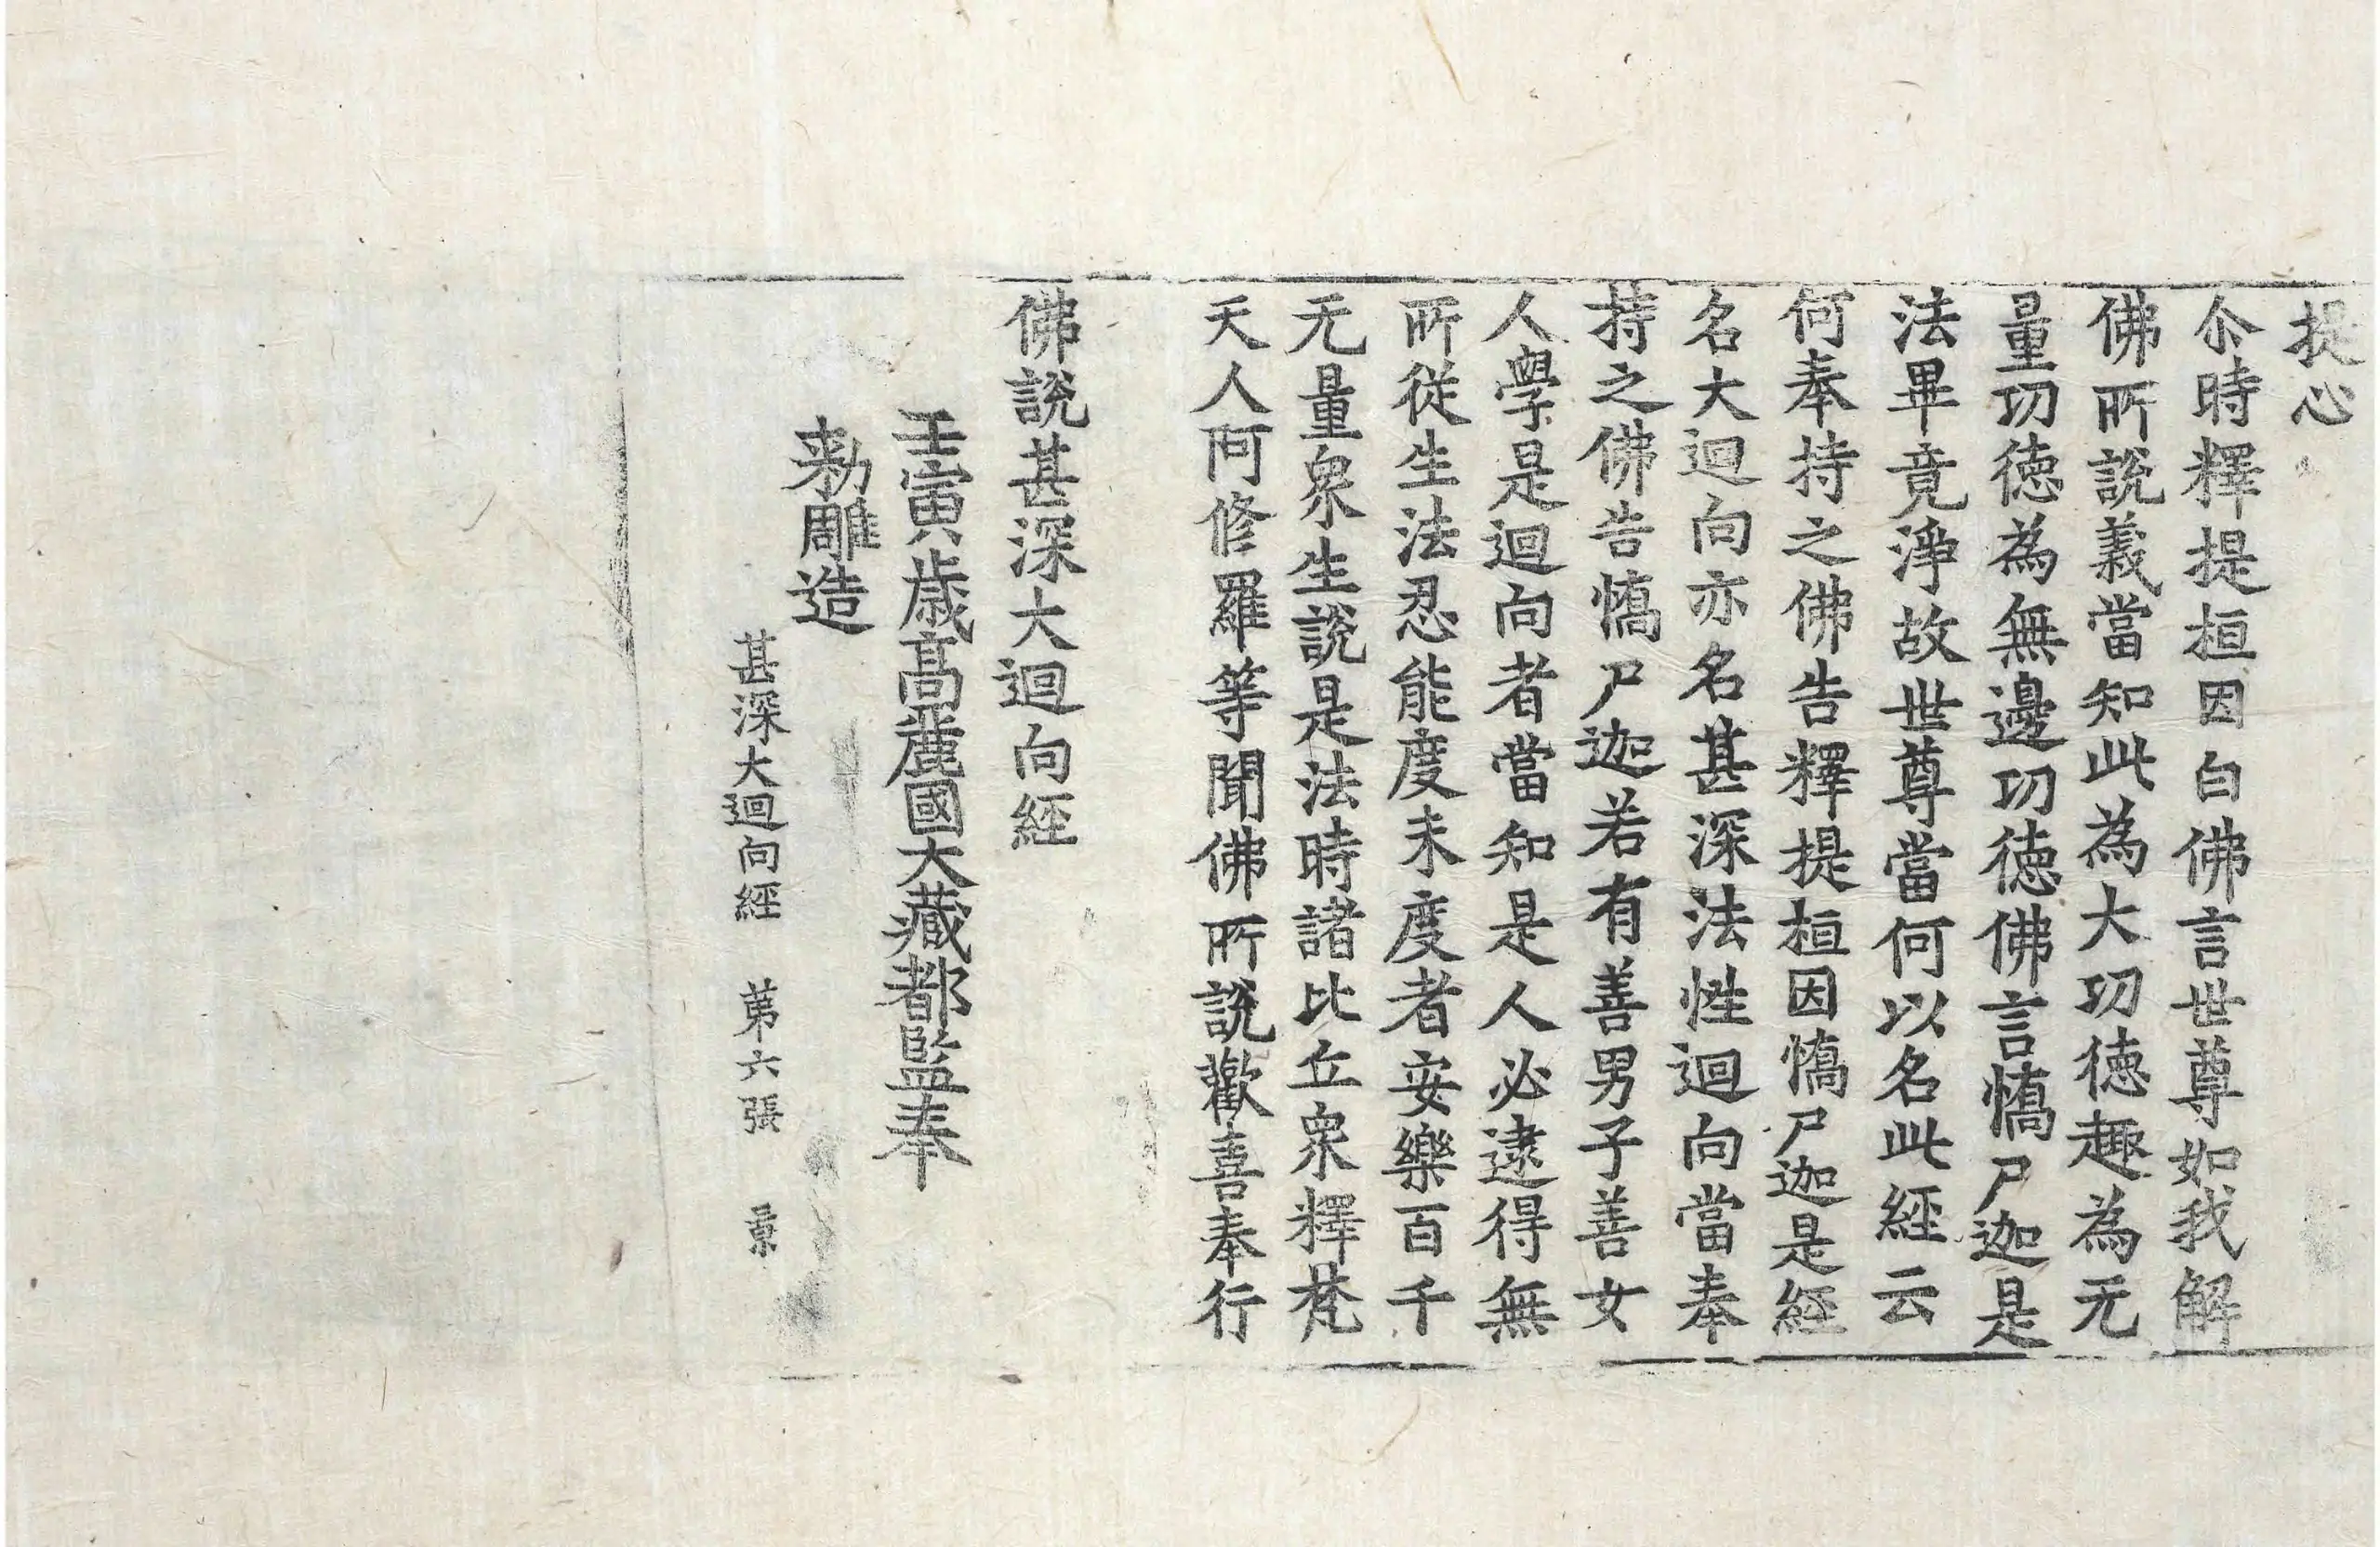 提心
尒時釋提桓因白佛言世尊如我解
佛所說義當知此為大功德趣為无
量功德為無邊功德佛言憍尸迦是
法畢竟淨故世尊當何以名此經云
何奉持之佛告釋提桓因憍尸迦是經
名大迴向亦名甚深法性迴向當奉
持之佛告憍尸迦若有善男子善女
人學是迴向者當知是人必逮得無
所從生法忍能度未度者安樂百千
无量眾生說是法時諸比丘眾釋梵
天人阿修羅等聞佛所說歡喜奉行
佛說甚深大迴向經
壬寅歲高麗國大藏都監奉
勑雕造
甚深大迴向經 第六張 章